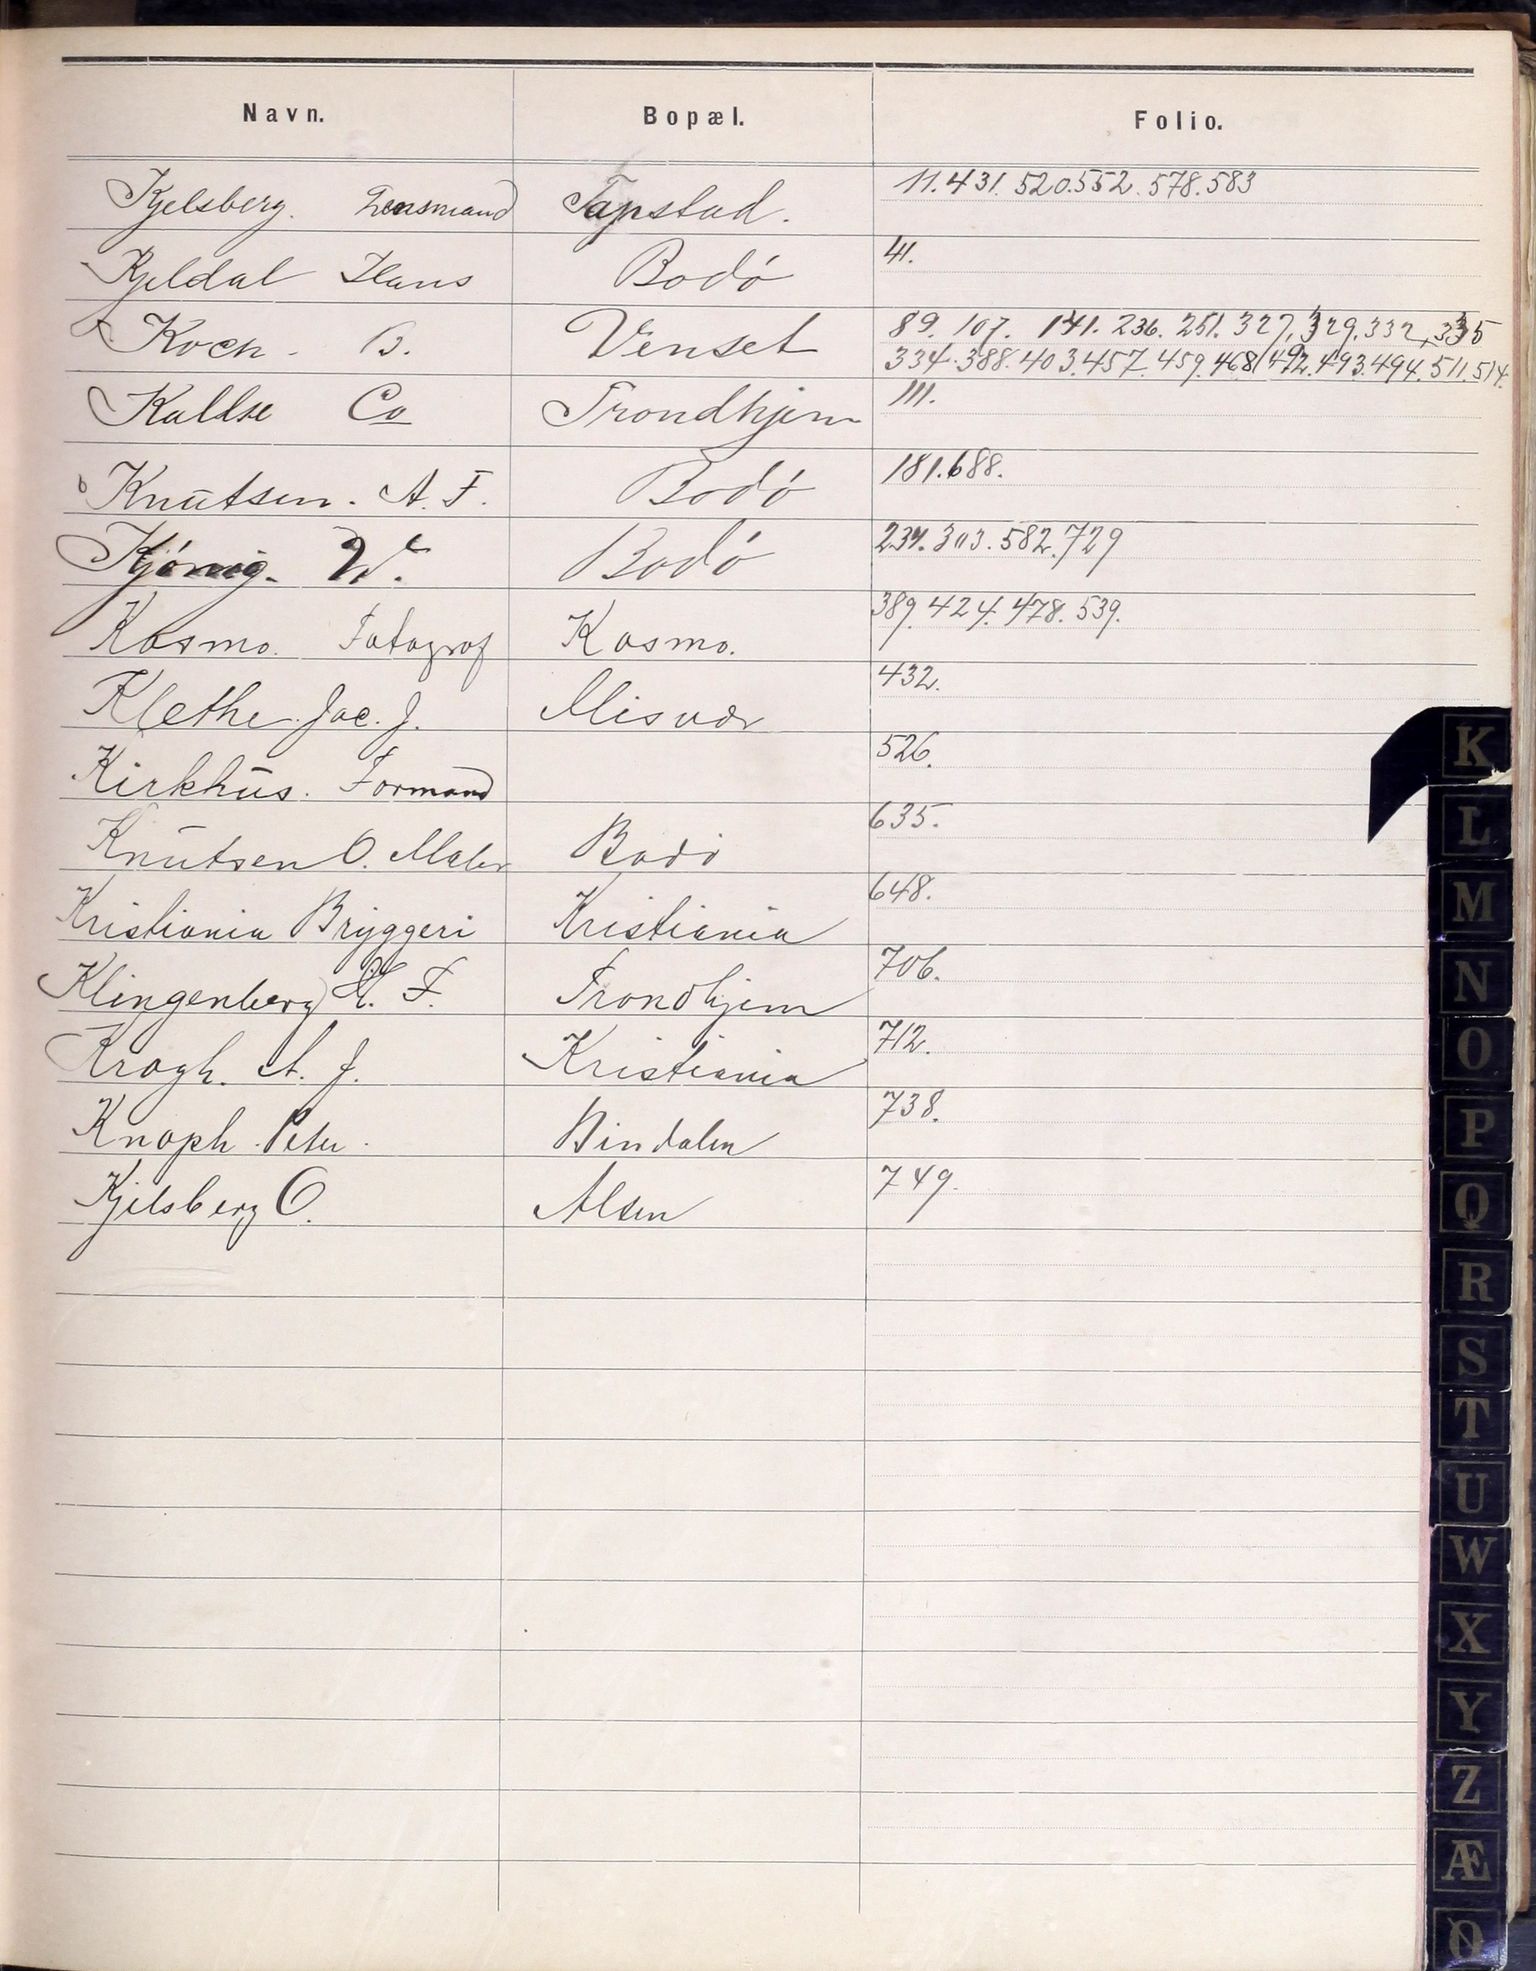 Navn. Bopæl. Folio.
Kjelsberg. Lensmand Tapstad. 11. 431. 520. 552. 578. 583
Kjeldal Hans Bodó 41.
Koch. B. Venset 89. 107. 141. 236. 251. 327. 329. 332. 335
334. 388. 403. 457. 459. 468. 492. 493. 494. 511. 514.
Co Trondhjem 111.
Knutsen. A. F. Bodó 181. 688.
Kjónig. W. Bodó 234. 303. 582. 729
Kosmo. Fotograf Kosmo. 389. 424. 478. 539.
Klethe. Jac. J. Misvær 432.
Kirkhus. Formand 526.
Knutsen O. Maler Bodó 635.
Kristiania Bryggeri Kristiania 648.
Klingenberg H. F. Trondhjem 706.
Krogh. A. J. Kristiania 712.
Knoph. Peter. Bindalen 738.
Kjelsberg O. Alsen 749.
K
L
M
N
O
P
Q
R
S
T
U
W
X
Y
Z
Æ
Ø